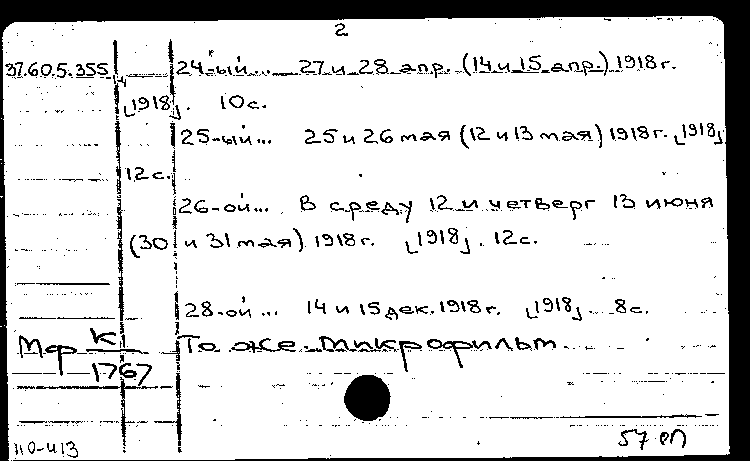 2
37.60.5.355 24-ый... 27 и 28 апр. (14 и 15 апр.) 1918 г.
[1918]. 10 с.
25-ый... 25 и 26 мая (12 и 13 мая) 1918 г. [1918]
12 с.
26-ой... В среду 12 и четверг 13 июня
(30 и 31 мая) 1918 г. [1918]. 12 с.
28-ой... 14 и 15 дек. 1918 г. [1918]. 8 с.
Мф К/1767 То же. Микрофильм.
57 еп